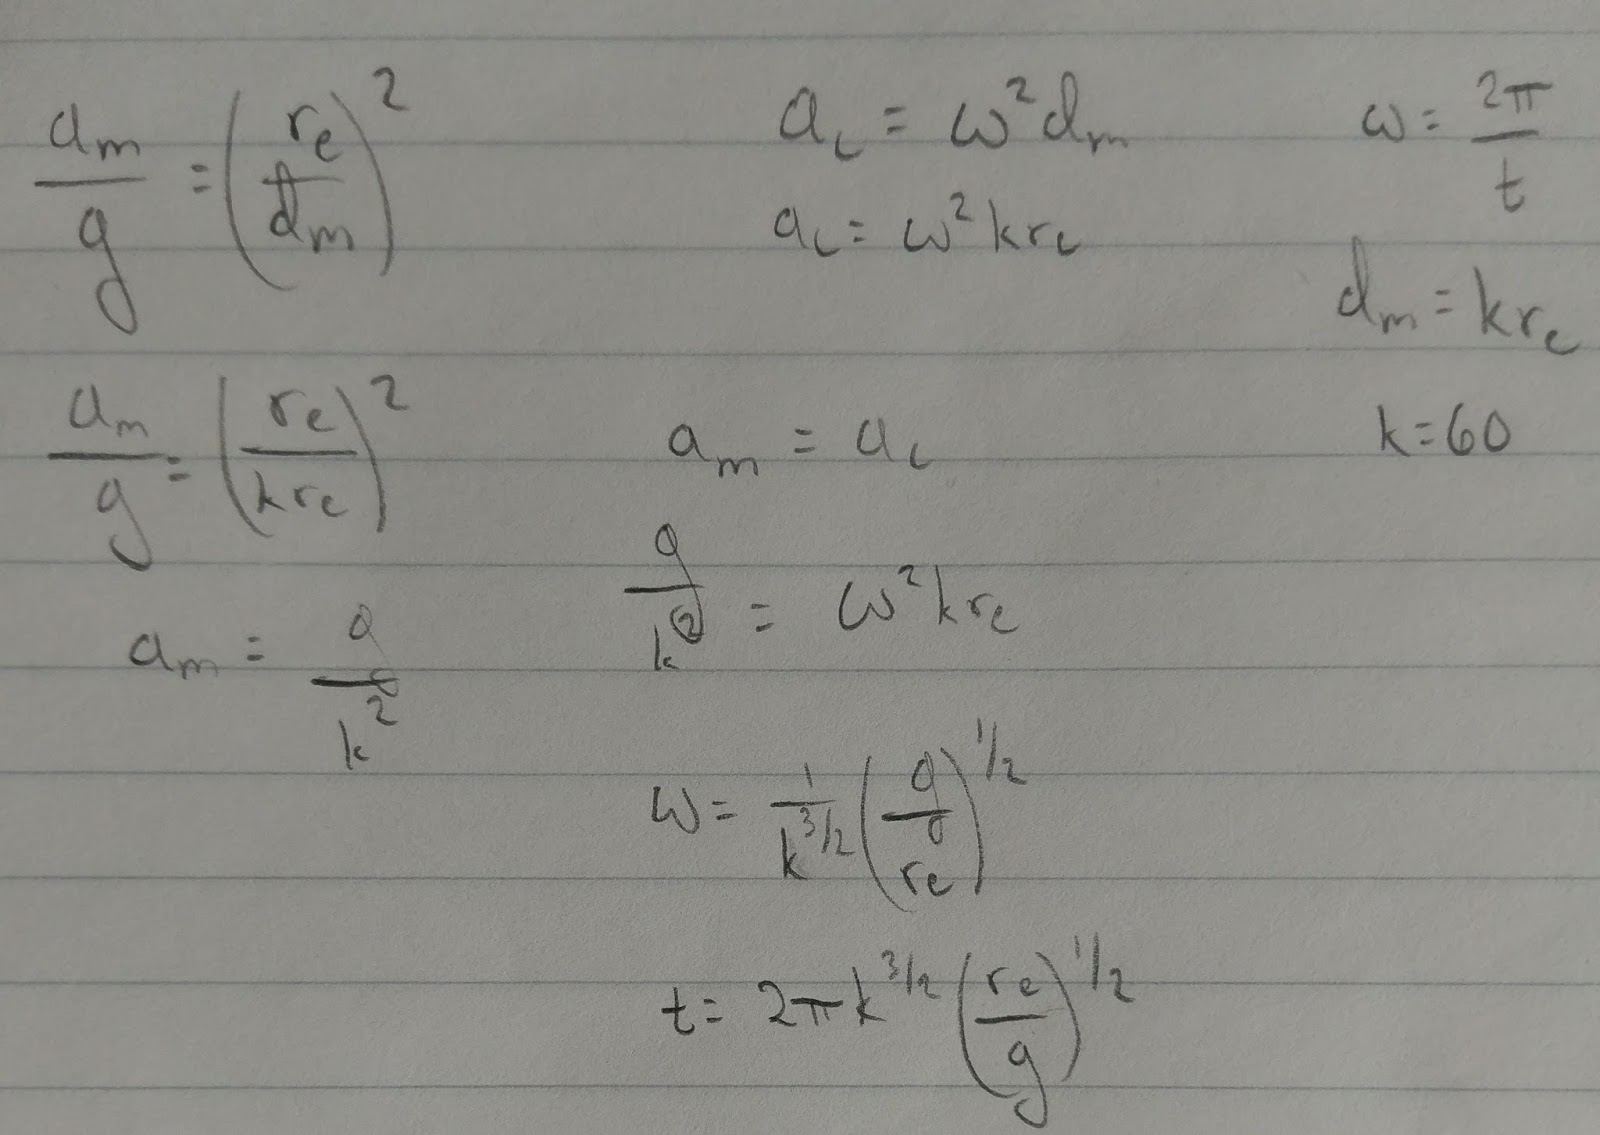 a_m/g = (r_e/d_m)^2
a_m/g = (r_e/kr_e)^2
a_m = g/k^2
a_c = ω^2 d_m
a_c = ω^2 kr_e
a_m = a_c
g/k^2 = ω^2 kr_e
ω = 1/k^3/2 (g/r_e)^1/2
t = 2πk^3/2 (r_e/g)^1/2
ω = 2π/t
d_m = kr_e
k = 60